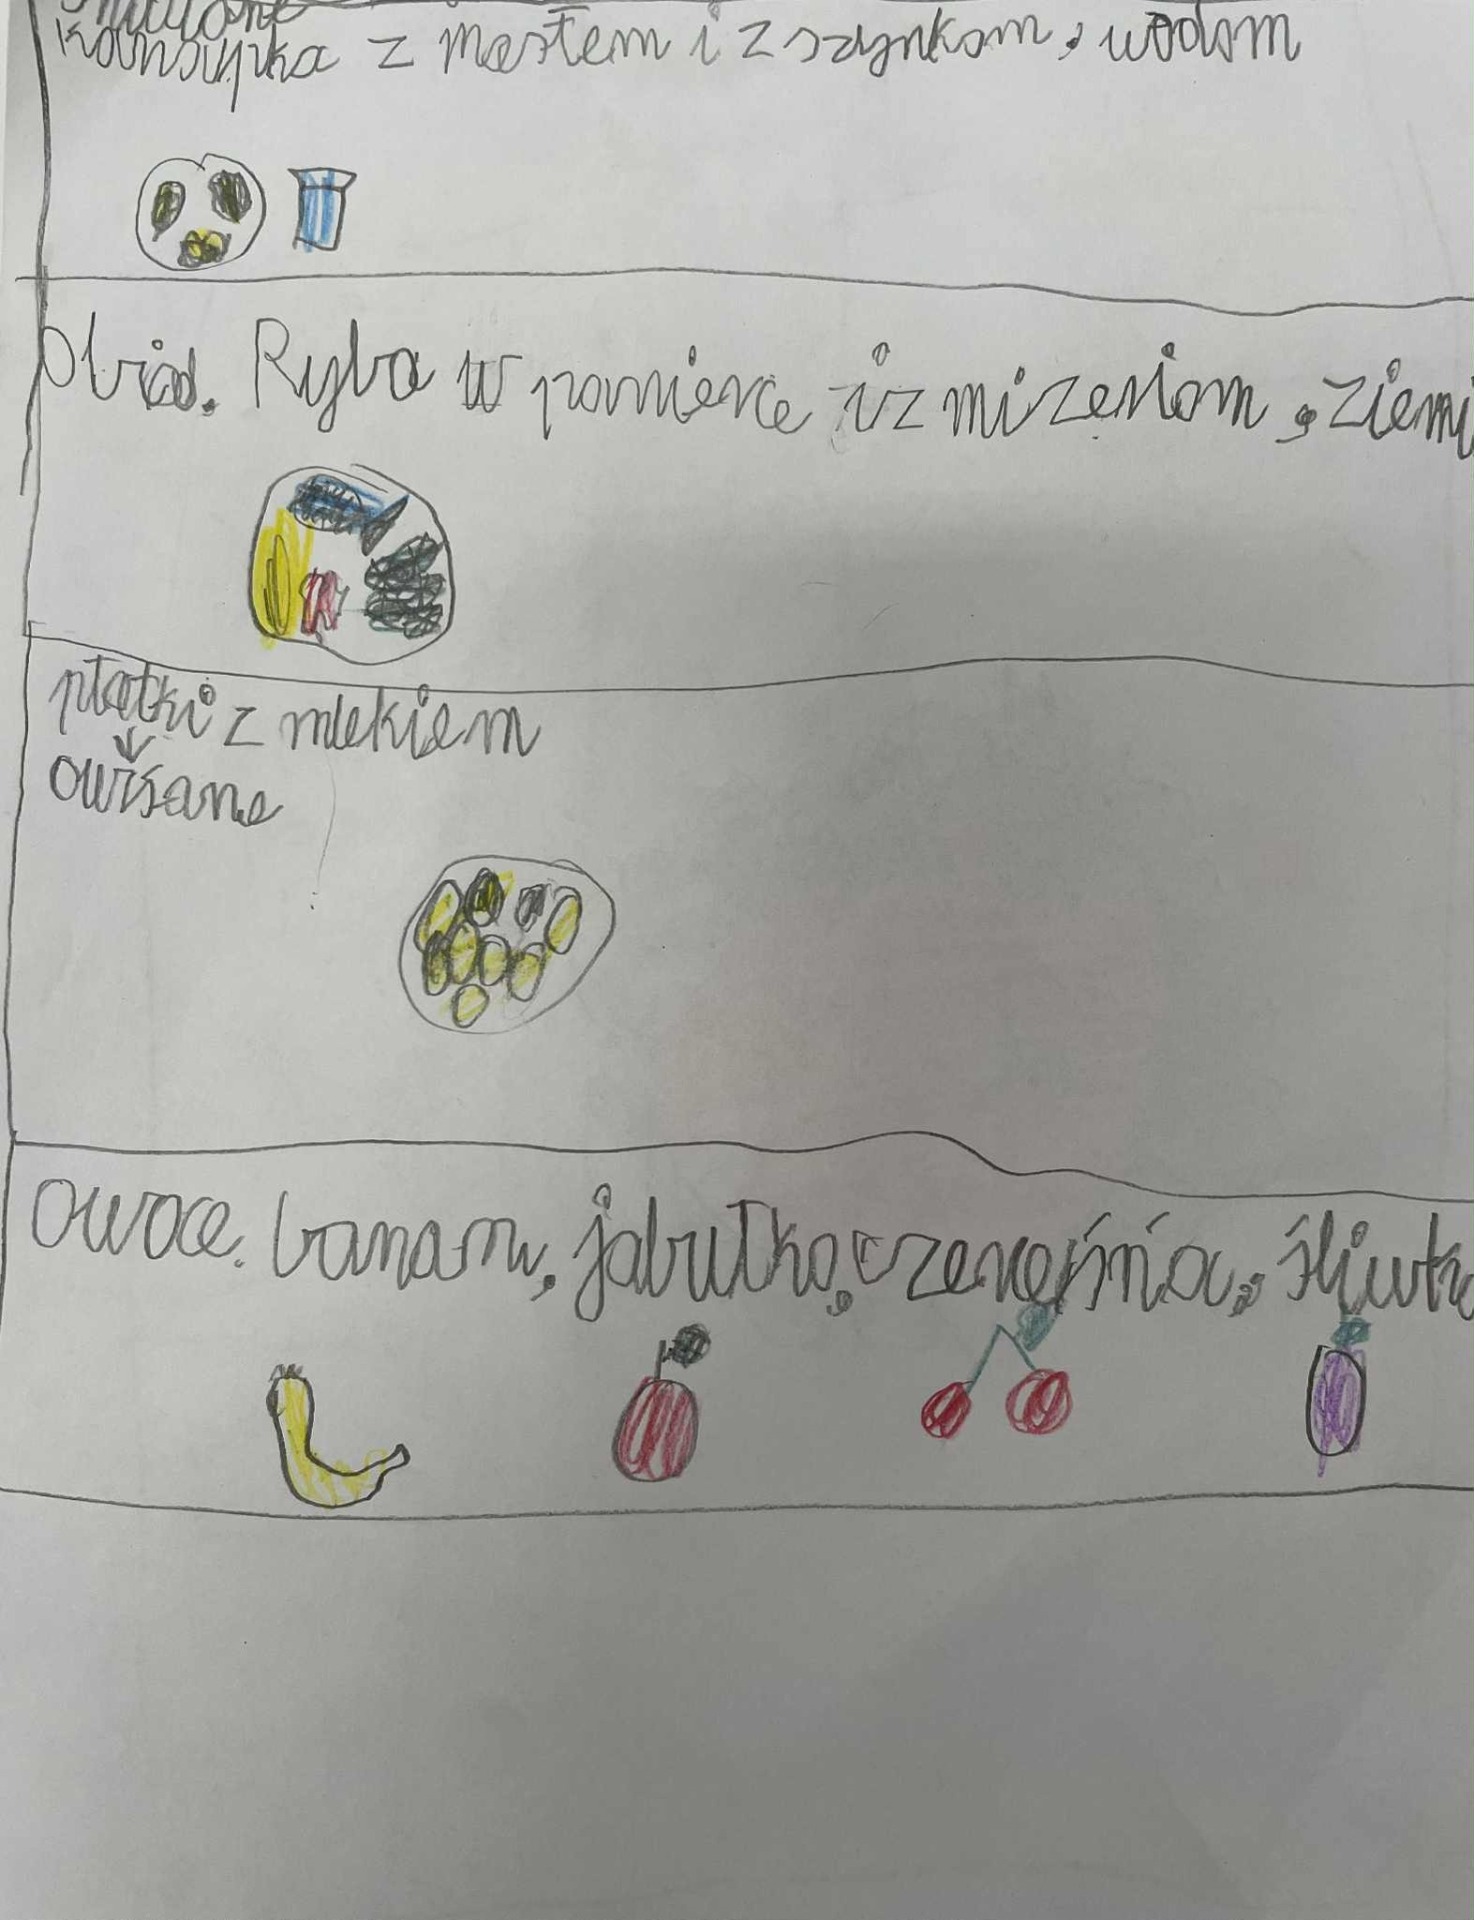 z masłem i z szynkom, wodom
obiad. Ryba w panierce i z mizeriom, ziemi
płatki z mlekiem
owśane
owoce. banan, jabułko, czereśńa, śliwka